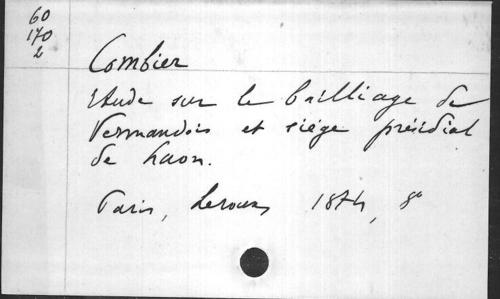 60
170
2
Combier
Etude sur le bailliage de
Vermandois et siége présidial
de Laon.
Paris, Leroux, 1874, 8°